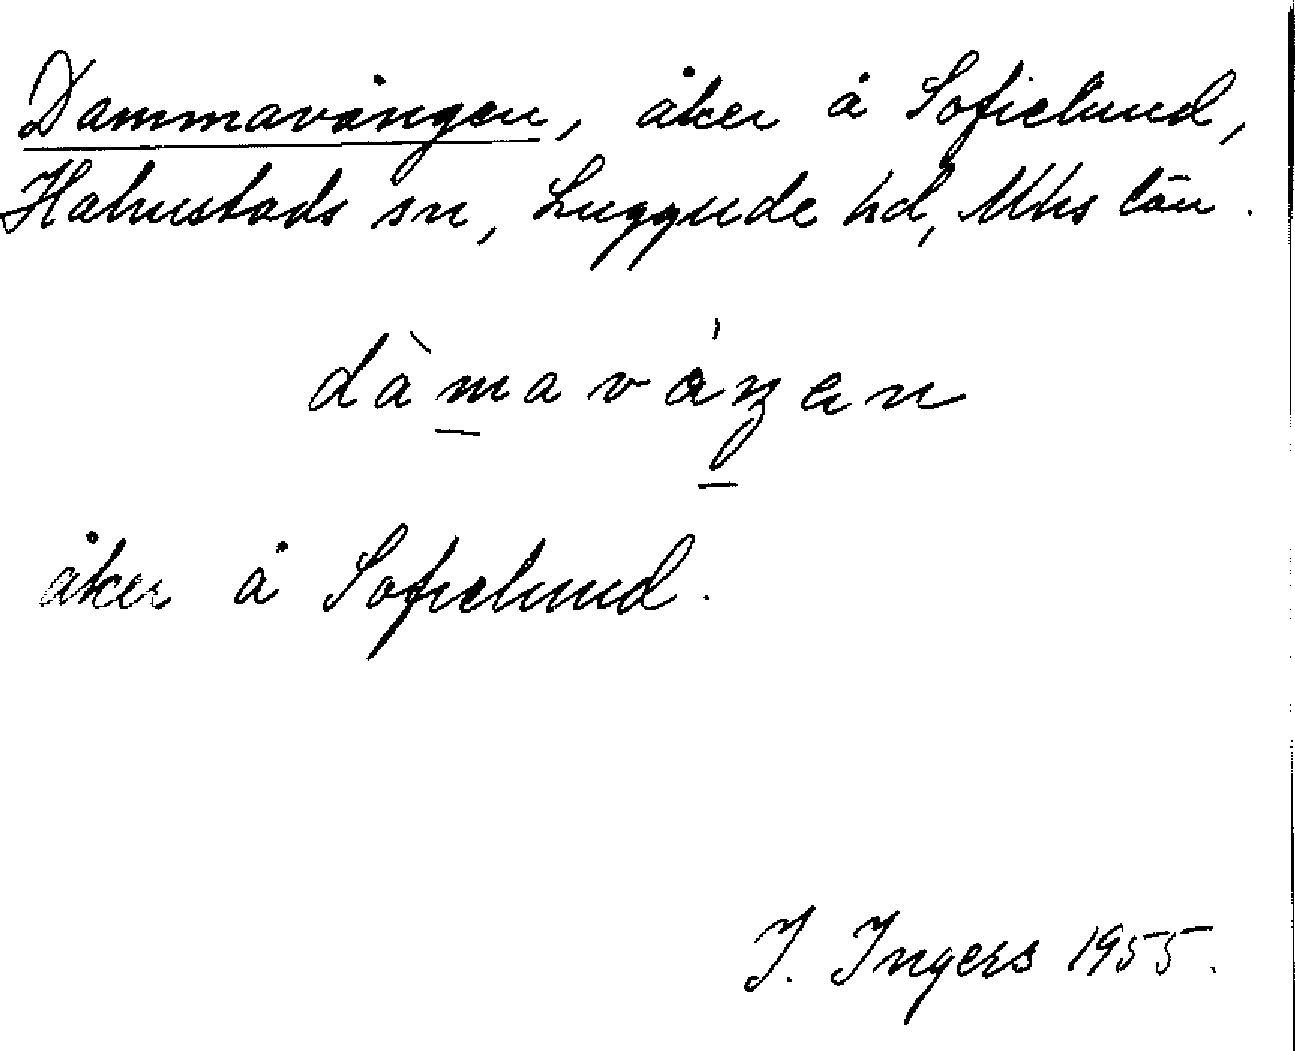 Dammavången, åker å Sofielund,
Halmstads sn, Luggude hd, Mhs län.
dàmavåŋen
åker å Sofielund.
I. Ingers 1955.